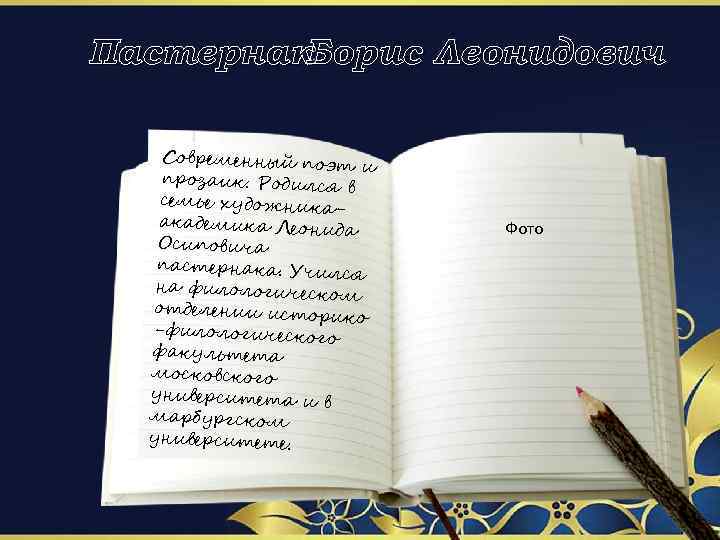 Пастернак Борис Леонидович
Современный поэт и
прозаик. Родился в
семье художника-
академика Леонида
Осиповича
пастернака. Учился
на филологическом
отделении историко
-филологического
факультета
московского
университета и в
марбургском
университете.
Фото